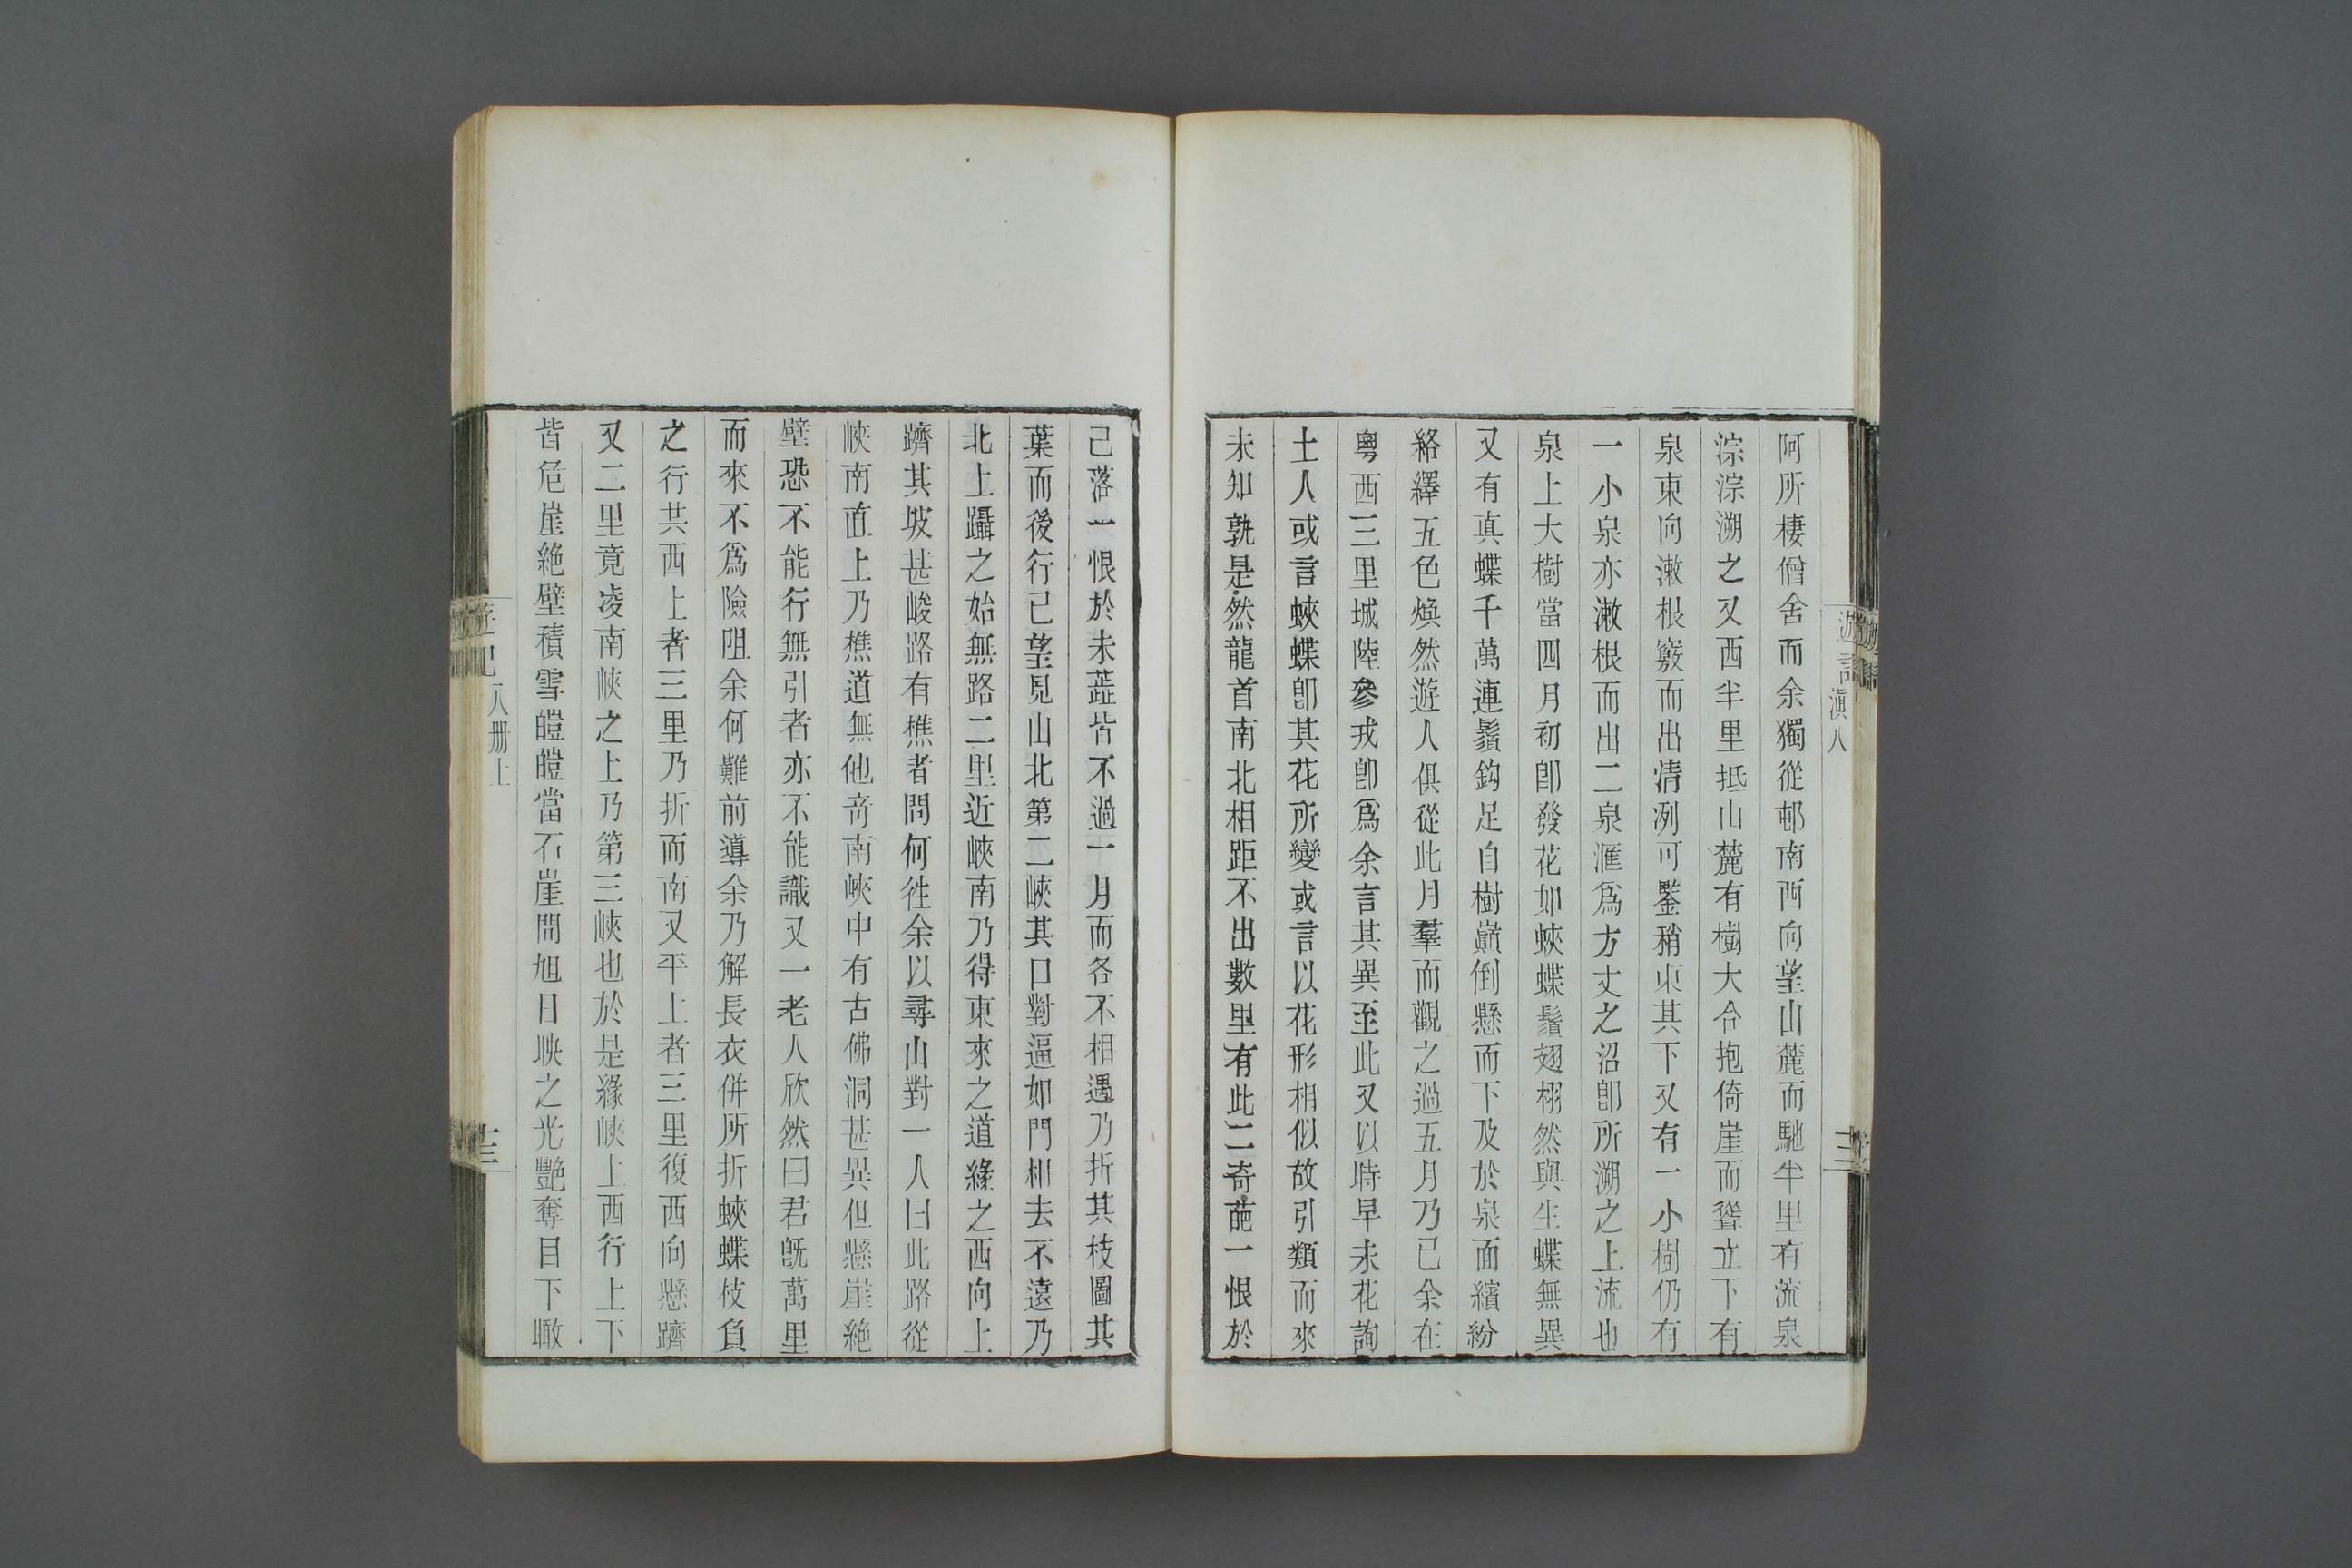 遊記滇八
十三
阿所棲僧舍而余獨從邨南西向望山麓而馳半里有流泉
淙淙溯之又西半里抵山麓有樹大合抱倚崖而聳立下有
泉東向漱根竅而出清洌可鑒稍東其下又有一小樹仍有
一小泉亦漱根而出二泉滙爲方丈之沼卽所溯之上流也
泉上大樹當四月初卽發花如蛺蝶鬚翅栩然與生蝶無異
又有真蝶千萬連鬚鈎足自樹巔倒懸而下及於泉面繽紛
絡繹五色煥然遊人俱從此月羣而觀之過五月乃已余在
粵西三里城陸參戎卽爲余言其異至此又以時早未花詢
土人或言蛺蝶卽其花所變或言以花形相似故引類而來
未知孰是然龍首南北相距不出數里有此二奇葩一恨於
已落一恨於未蕋皆不過一月而各不相遇乃折其枝圖其
葉而後行已望見山北第二峽其口對逼如門相去不遠乃
北上躡之始無路二里近峽南乃得東來之道緣之西向上
躋其坡甚峻路有樵者問何徃余以尋山對一人曰此路從
峽南直上乃樵道無他奇南峽中有古佛洞甚異但懸崖絶
壁恐不能行無引者亦不能識又一老人欣然曰君旣萬里
而來不爲險阻余何難前導余乃解長衣併所折蛺蝶枝負
之行共西上者三里乃折而南又平上者三里復西向懸躋
又二里竟凌南峽之上乃第三峽也於是緣峽上西行上下
皆危崖絶壁積雪皚皚當石崖間旭日映之光艷奪目下瞰
遊記
八册上
十三